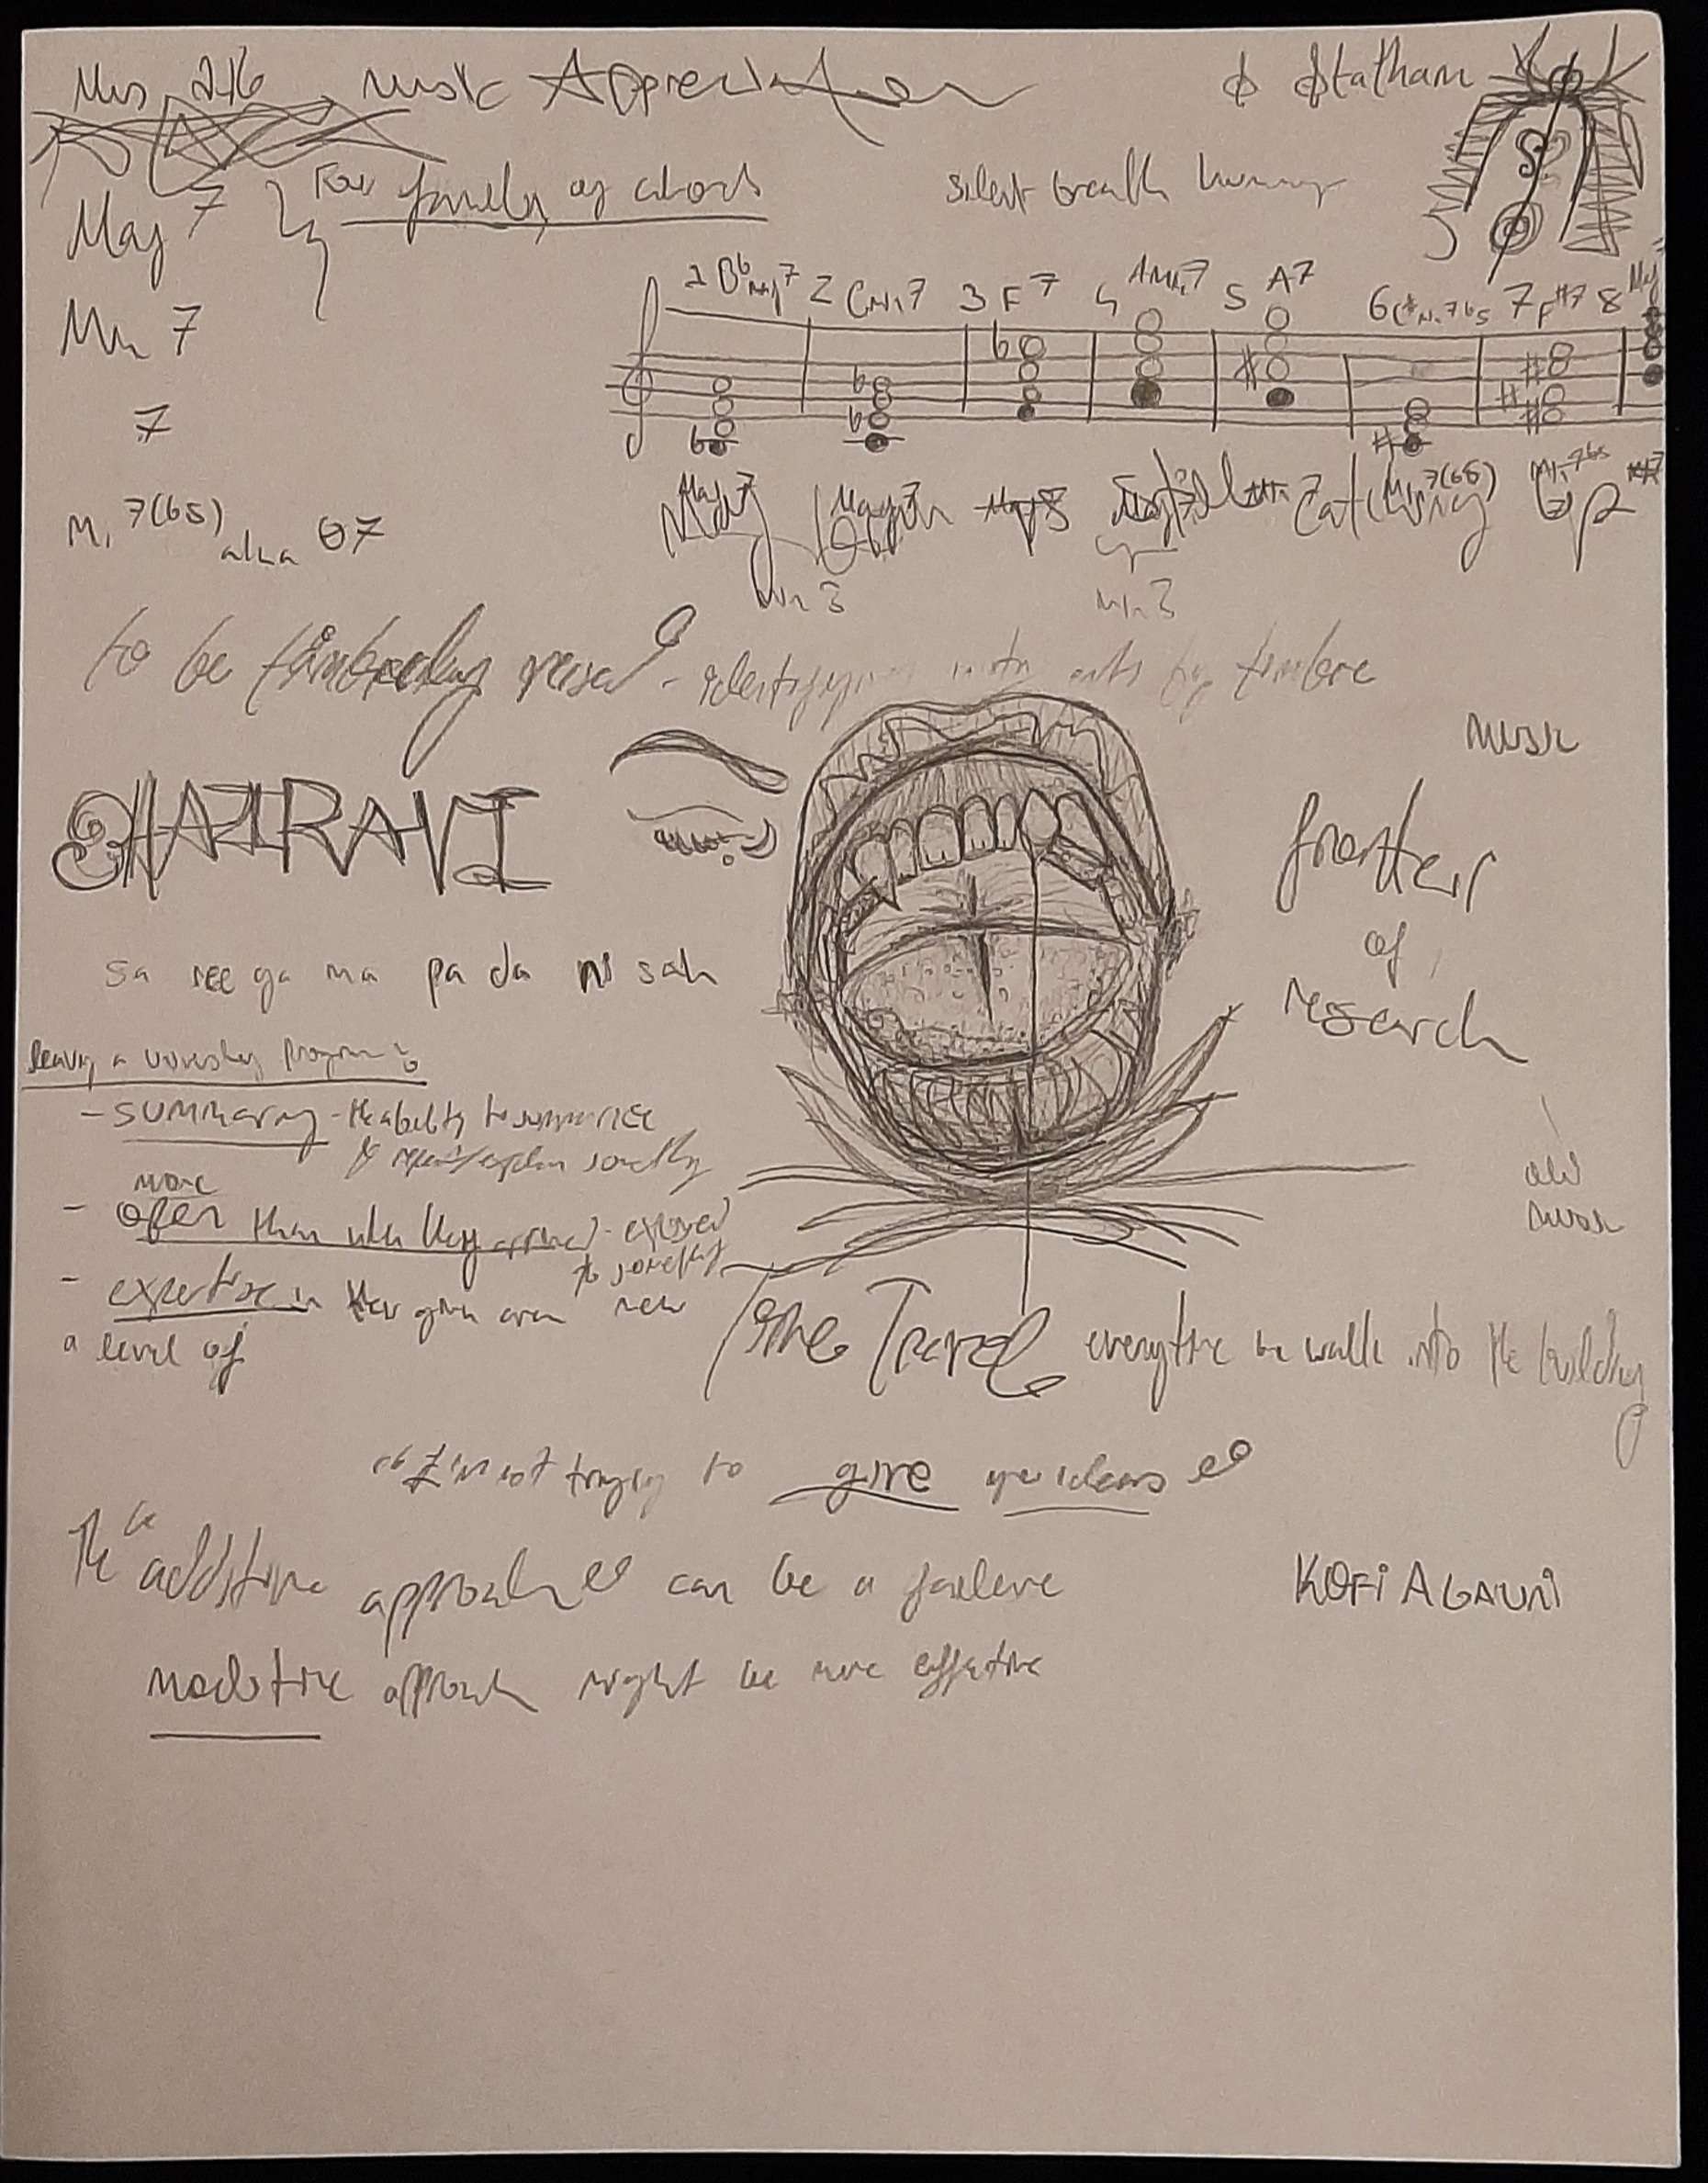 Mus 246 Music Appreciation
Statham
Four family of chords
silent breath humming
Maj 7
Mi 7
7
Mi 7(b5) aka Ø7
1 Bb maj7 2 Cmi7 3 F7 4 Ami7 5 A7 6 C#mi7b5 7 F#7 8 Maj
Catching up
Mi 3 Mi 3
to be timbrally - identifying by timbre
music
BHAIRAVI
frontiers
of
research
sa ree ga ma pa da ni sah
leaving a university program:
- summary - the ability to summarize
& repeat/explain something
- more open than when they arrived - exposed
to something
new
- expertise in their given area
a level of
old
music
Time Travel everytime we walk into the building
"I'm not trying to give you ideas"
The "additive approach" can be a failure
KOFI AGAWU
approach might be more effective